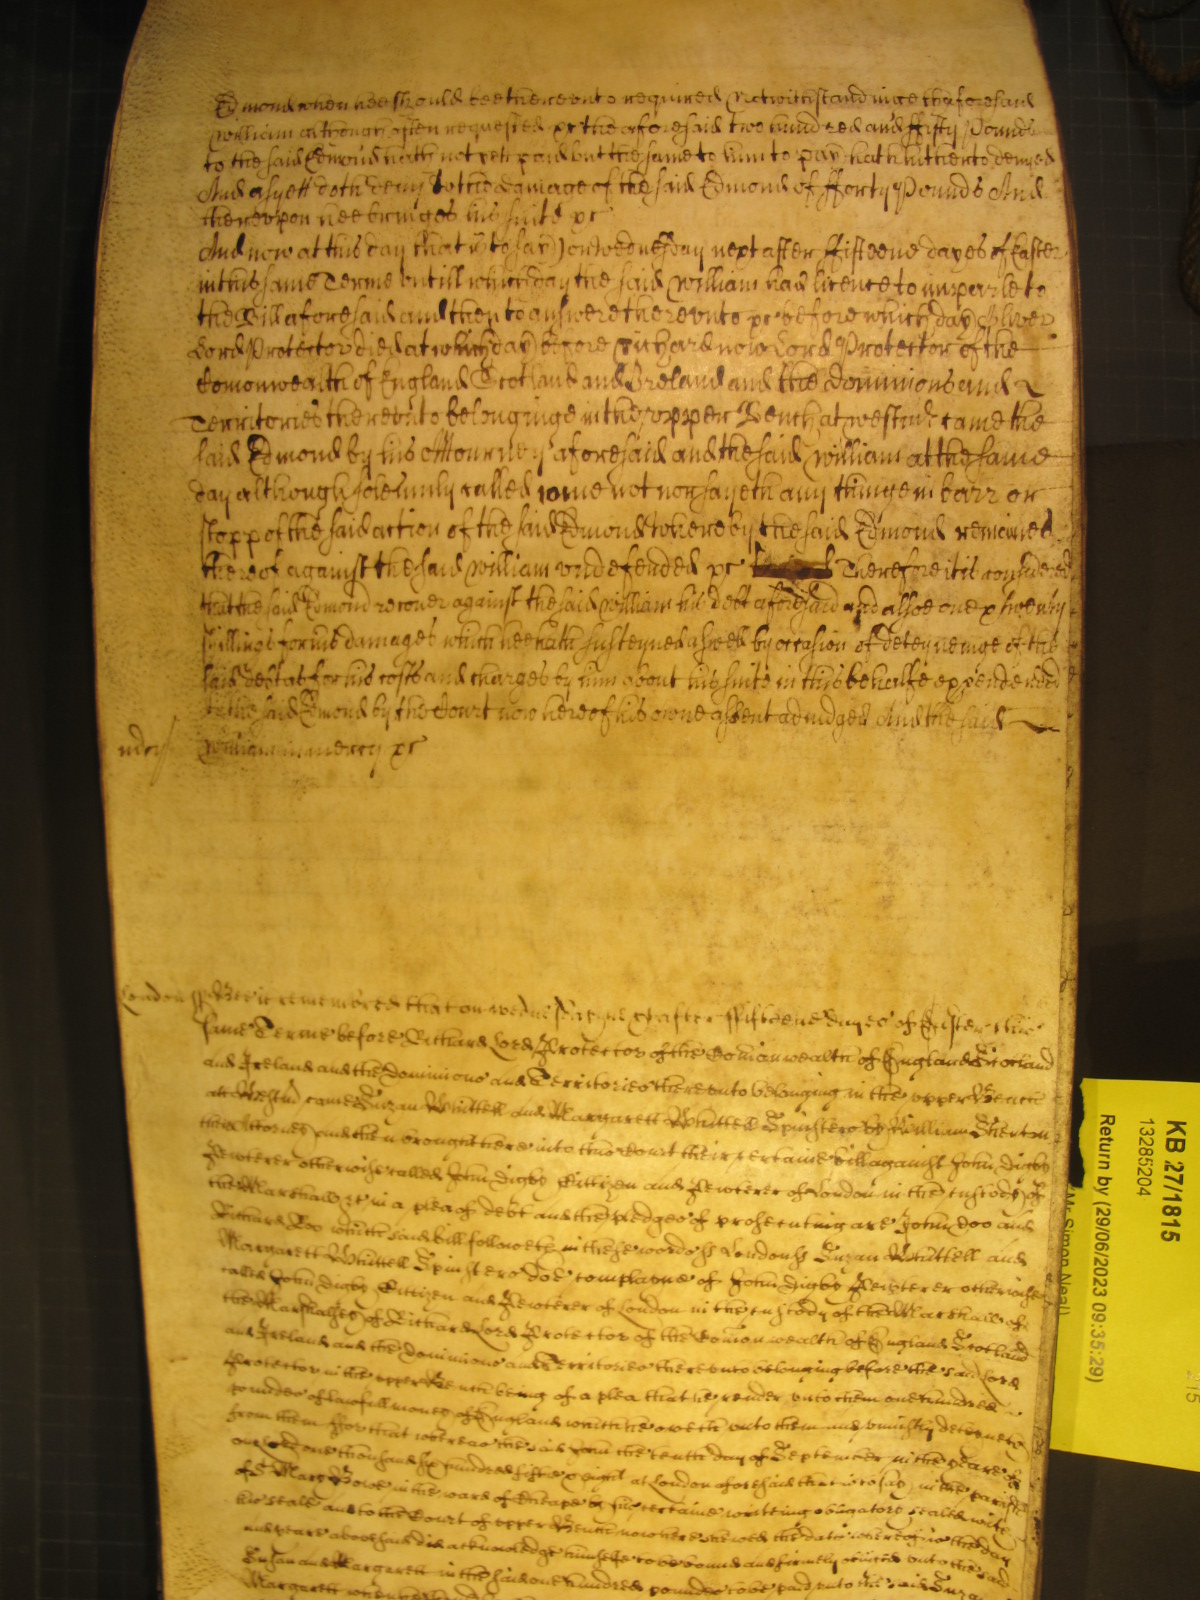 Edmond when hee should bee thereunto required Notwithstandinge the aforesaid
William although often requested &c the aforesaid two hundred and ffifty Pounds
to the said Edmond hath not yett paid but the same to him to pay hath hitherto denyed
And as yett doth deny to the damage of the said Edmond of fforty Pounds And
thereupon hee bringes his suite &c
And now at this day that is to say on Wednesday next after ffifteene dayes of Easter
in this same Terme untill which day the said William had licence to imparle to
the Bill aforesaid and then to answere thereunto &c before which day Oliver
Lord Protector died at which day before Richard now Lord Protector of the
Comonwealth of England Scotland and Ireland and the Dominions and
Territories thereunto belonginge in the upper Bench at Westmr came the
said Edmond by his Attourney aforesaid and the said William at the same
day although solemnly called come not nor sayeth any thinge in barr or
stopp of the said action of the said Edmond Whereby the said Edmond remained
thereof against the said William undefended &c Therefore it is considered
that the said Edmond recover against the said William his debt aforesaid and alsoe one & twenty
shillings for his damages which hee hath susteyned aswell by occasion of deteyneinge of the
said debt as for his costs and charges by him about his suite in this behalfe expended
to the said Edmond by the Court now here of his owne assent adiudged And the said
William in mercy &c
London ss Bee it remembred that on Wednesday next after ffifteene dayes of Easter this
same Terme before Richard Lord Protector of the Comonwealth of England Scotland
and Ireland and the Dominions and Territories thereunto belonging in the upper Bench
att Westmr came Suzan Whittell and Margarett Whittell Spinsters by William
their Attorney and then brought here into this Court their certaine bill against John Digby
Pewterer otherwise called John Digby Cittizen and Pewterer of London in the custody of
the Marshall &c in a plea of debt and the pledges of prosecuting are John Doo and
Richard Roo which said bill followeth in these words ss London ss Suzan Whittell and
Margarett Whittell Spinsters doe complayne of John Digby Pewterer otherwise
called John Digby Cittizen and Pewterer of London in the custody of the Marshall of
the Marshalsey of Richard Lord Protector of the Comonwealth of England Scotland
and Ireland and the Dominions and Territories thereunto belonging before the said Lord
Protector in the upper Bench being of a plea that he render unto them one hundred
poundes of lawfull money of England which he oweth unto them and uniustly deteyneth
from them ffor that whereas the said John the tenth day of September in the yeare of
our Lord one thousand six hundred fiftie & eight at London aforesaid that is to say in the parish
of St Mary Bowe in the ward of Cheape by his certaine writeing obligatory sealed with
his seale and to the Court of upper Bench now here shewed the date whereof is the day
and yeare abovesaid did acknowledge himselfe to be bound and firmely obliged unto the said
Suzan and Margarett in the said one hundred poundes to be paid unto the said Suzan
Margarett when
KB 27/1815
13285204
Return by (29/06/2023 09:35:29)
Mr Simon Neal